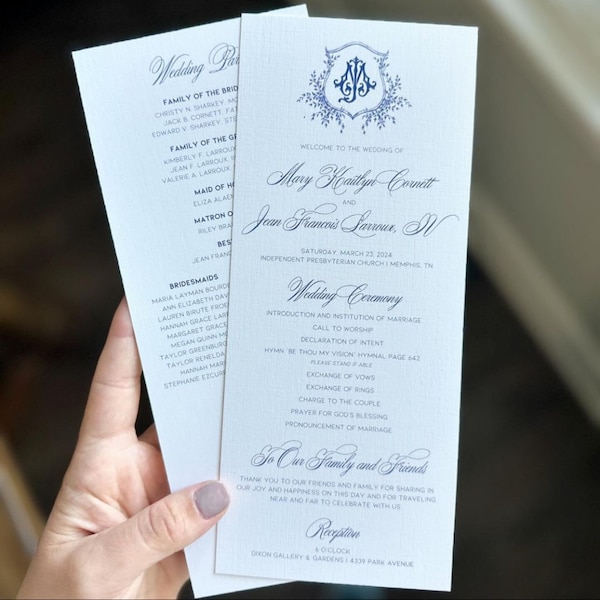 Wedding
FAMILY OF THE
CHRISTY N. SHARKEY,
JACK B. CORNETT,
EDWARD V. SHARKEY,
FAMILY OF THE
KIMBERLY F. LARROUX
JEAN F. LARROUX
VALERIE A. LARROUX
MAID OF
ELIZA
MATRON
RILEY
JEAN
BRIDESMAIDS
MARIA LAYMAN
ANN ELIZABETH
LAUREN BIRUTE
HANNAH GRACE
MARGARET
MEGAN QUINN
TAYLOR
TAYLOR
HANNAH
STEPHANIE
WELCOME TO THE WEDDING OF
Mary Kaitlyn Cornett
AND
Jean Francois Larroux, IV
SATURDAY, MARCH 23, 2024
INDEPENDENT PRESBYTERIAN CHURCH | MEMPHIS, TN
Wedding Ceremony
INTRODUCTION AND INSTITUTION OF MARRIAGE
CALL TO WORSHIP
DECLARATION OF INTENT
HYMN 'BE THOU MY VISION' HYMNAL PAGE 642
PLEASE STAND IF ABLE
EXCHANGE OF VOWS
EXCHANGE OF RINGS
CHARGE TO THE COUPLE
PRAYER FOR GOD'S BLESSING
PRONOUNCEMENT OF MARRIAGE
To Our Family and Friends
THANK YOU TO OUR FRIENDS AND FAMILY FOR SHARING IN
OUR JOY AND HAPPINESS ON THIS DAY AND FOR TRAVELING
NEAR AND FAR TO CELEBRATE WITH US.
Reception
6 O'CLOCK
DIXON GALLERY & GARDENS | 4339 PARK AVENUE